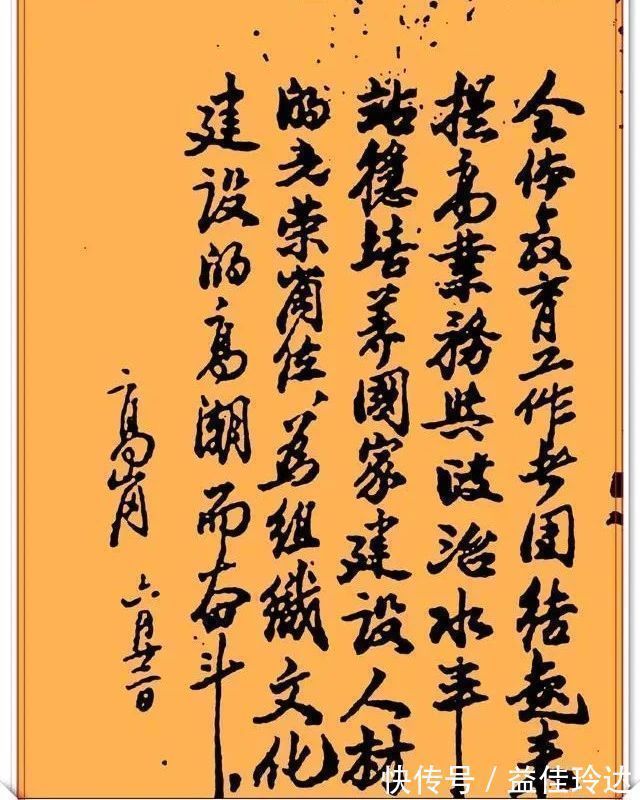 全体教育工作者团结起来
提高業務與政治水平
站穩培养國家建设人材
的光荣崗位、为組織文化
建设的高潮而奋斗
高崗 六月廿二日
快传号 / 益佳玲达